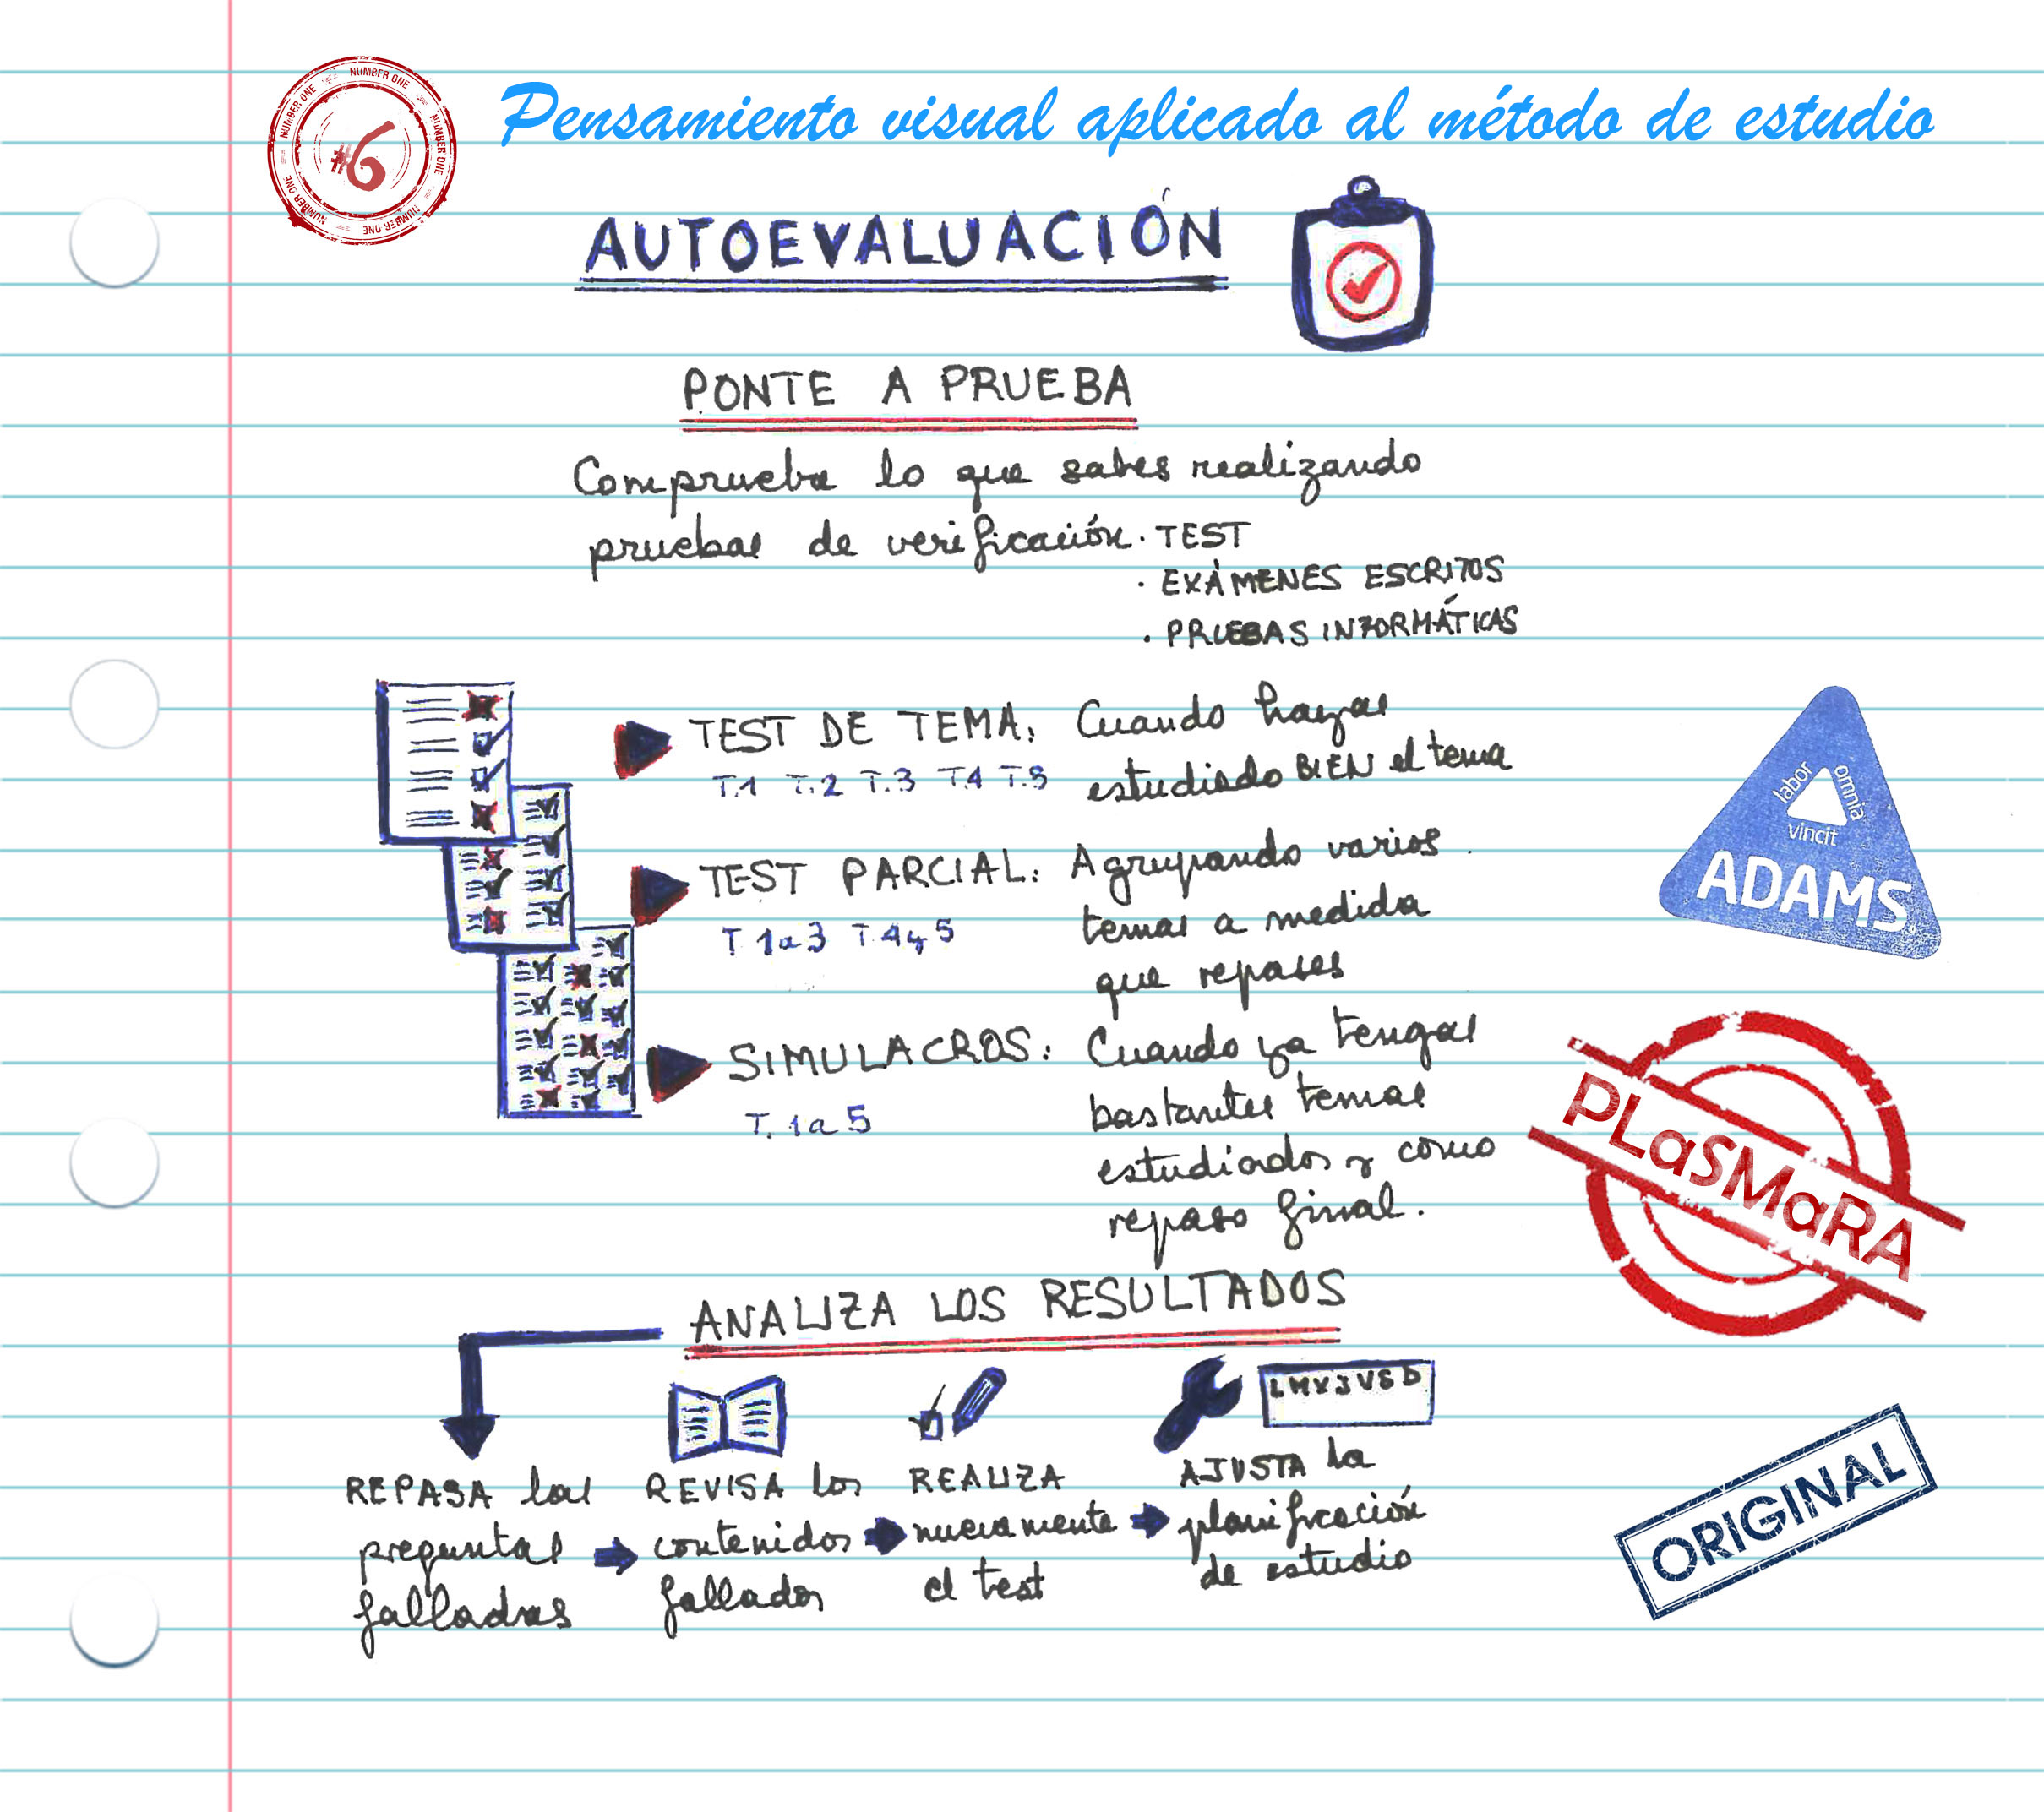 NUMBER ONE NUMBER ONE NUMBER ONE NUMBER ONE NUMBER ONE
#6
Pensamiento visual aplicado al método de estudio
AUTOEVALUACIÓN
PONTE A PRUEBA
Comprueba lo que sabes realizando
pruebas de verificación. · TEST
· EXÁMENES ESCRITOS
· PRUEBAS INFORMÁTICAS
TEST DE TEMA: Cuando hayas
T.1 T.2 T.3 T.4 T.5 estudiado BIEN el tema
TEST PARCIAL: Agrupando varios
T. 1a3 T. 4y5 temas a medida
que repases
SIMULACROS: Cuando ya tengas
T. 1a5 bastantes temas
estudiados y como
repaso final.
labor omnia
vincit
ADAMS
PLaSMaRA
ANALIZA LOS RESULTADOS
LMXJVSD
REPASA las
preguntas
falladas
REVISA los
contenidos
fallados
REALIZA
nuevamente
el test
AJUSTA la
planificación
de estudio
ORIGINAL